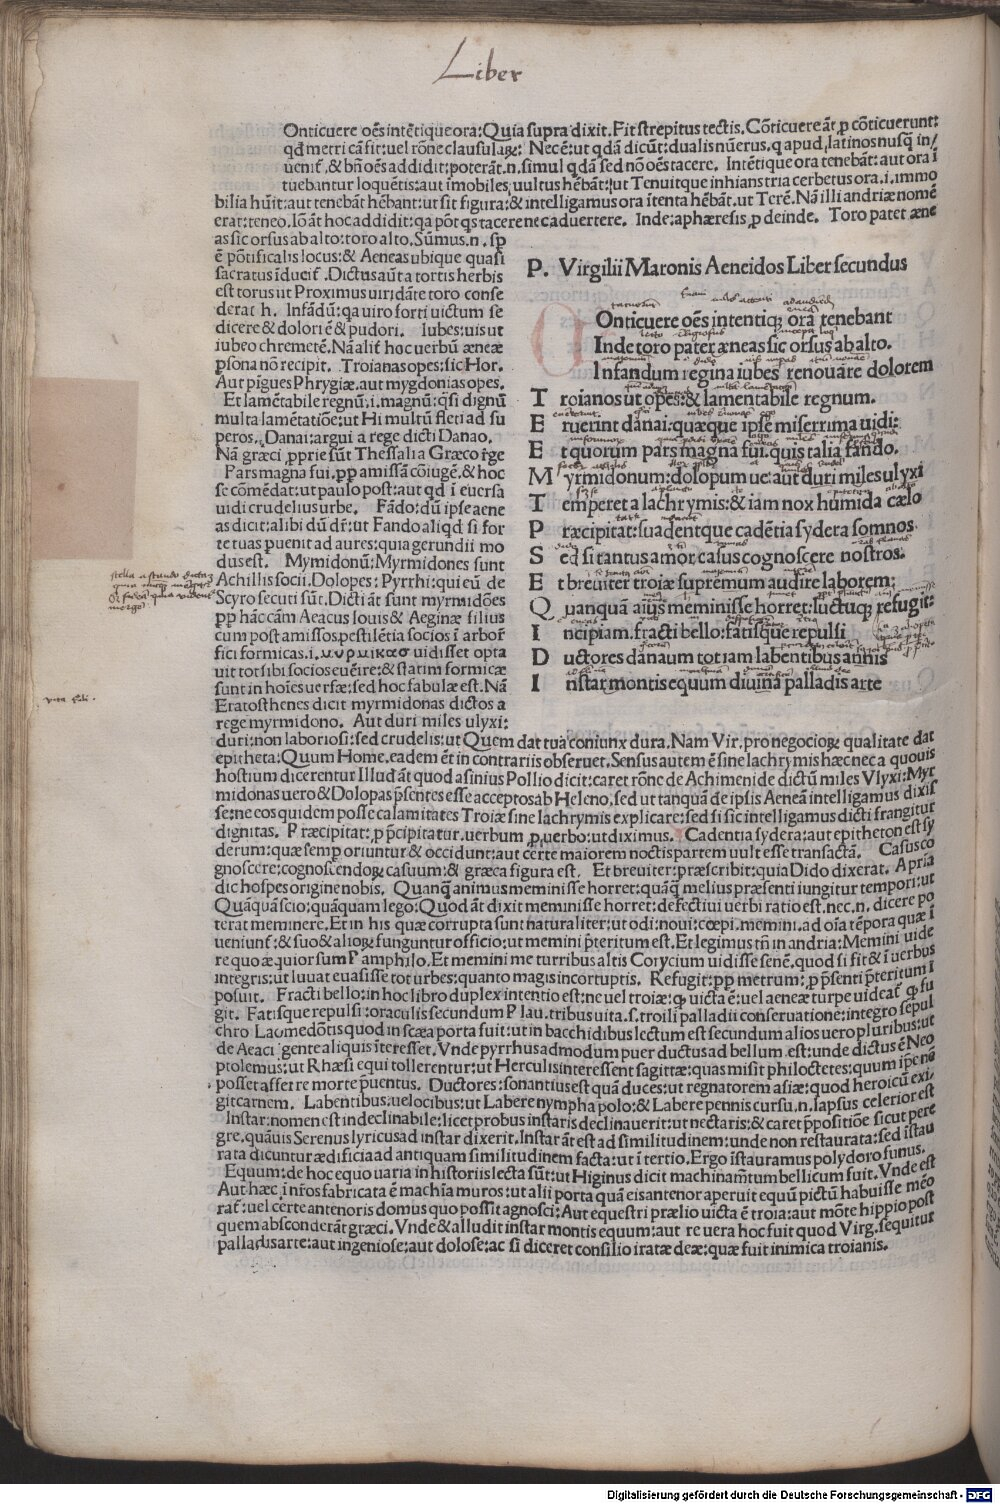 Liber
Onticuere oēs intētique ora: Quia supra dixit. Fit strepitus tectis. Cōticuere āt ꝓ cōticuerunt:
qđ metri cā fit: uel rōne clausulaꝝ: Nec ē: ut qđā dicūt: dualis nūerus. q apud latinos nusq̄ in/
uenit᷑, & bn̄ oēs addidit: poterāt .n. simul qđā sed nō oēs tacere. Intētique ora tenebāt: aut ora ī
tuebantur loquētis: aut īmobiles uultus hēbāt: ut Tenuitque inhians tria cerbetus ora .i. immo
bilia hūit: aut tenebāt hēbant: ut sit figura: & intelligamus ora ītenta hēbāt. ut Terē. Nā illi andriæ nomē
erat: teneo. Iō āt hoc addidit: qa pōt qs tacere nec aduertere. Inde: aphæresis, ꝓ deinde. Toro pater æne
as sic orsus ab alto: toro alto. Sūmus .n. sꝑ
ē pōtificalis locus: & Aeneas ubique quasi
sacratus īducit᷑. Dictus aūt a tortis herbis
est torus ut Proximus uiridāte toro conse
derat h. Infādū: qa uiro forti uictum se
dicere & dolori ē & pudori. Iubes: uis ut
iubeo chremetē. Nā alit᷑ hoc uerbū æneæ
ꝑsona nō recipit. Troianas opes: sic Hor.
Aut pīgues Phrygiæ. aut mygdonias opes.
Et lamētabile regnū .i. magnū: qsi dignū
multa lamētatiōe: ut Hi multū fleti ad su
peros. Danai: argui a rege dicti Danao.
Nā græci ꝓprie sūt Thessalia Græco rege
Pars magna fui. ꝓp amissā cōiugē. & hoc
se cōmēdat: ut paulo post: aut qđ ī euersa
uidi crudelius urbe. Fādo: dū ipse aene
as dicit: alibi dū dr̄: ut Fando aliqđ si for
te tuas ꝑuenit ad aures: quia gerundii mo
dus est. Mymidonū: Myrmidones sunt
Achillis socii. Dolopes: Pyrrhi: qui eū de
Scyro secuti sūt. Dicti āt sunt myrmidōes
ꝓp hāc cām Aeacus Iouis & Aeginæ filius
cum post amissos pestilētia socios ī arbore
fici formicas .i. μυρμικασ uidisset opta
uit tot sibi socios euēire: & statim formicæ
sunt in hoīes uersæ: sed hoc fabulæ est. Nā
Eratosthenes dicit myrmidonas dictos a
rege myrmidono. Aut duri miles ulyxi:
P. Virgilii Maronis Aeneidos Liber secundus
Onticuere oēs intentiq; ora tenebant
Inde toro pater æneas sic orsus ab alto.
Infandum regina iubes renouare dolorem
Troianos ut opes: & lamentabile regnum.
Eruerint danai: quæque ipse miserrima uidi:
Et quorum pars magna fui. quis talia fando.
Myrmidonum: dolopum ue: aut duri miles ulyxi
Temperet a lachrymis: & iam nox humida cælo
Præcipitat: suadentque cadētia sydera somnos.
Sed si tantus amor casus cognoscere nostros.
Et breuiter troiæ supremum audire laborem:
Quanquā aīus meminisse horret: luctuq; refugit:
Incipiam. fracti bello: fatisque repulsi
Ductores danaum tot iam labentibus annis
Instar montis equum diuina palladis arte
duri: non laboriosi: sed crudelis: ut Quem dat tua coniunx dura. Nam Vir. pro negocioꝝ qualitate dat
epitheta: Quum Home. eadem ēt in contrariis obseruet. Sensus autem ē sine lachrymis hæc nec a quouis
hostium dicerentur Illud āt quod asinius Pollio dicit: caret rōne de Achimenide dictū miles Vlyxi: Myr
midonas uero & Dolopas p̄sentes esse acceptos ab Heleno, sed ut tanquā de ipsis Aeneā intelligamus dixis
se: ne eos quidem posse calamitates Troiæ sine lachrymis explicare: sed si sic intelligamus dicti frangitur
dignitas. Præcipitat: ꝓ p̄cipitatur. uerbum ꝓ uerbo: ut diximus. Cadentia sydera: aut epitheton est sy
derum: quæ semꝑ oriuntur & occidunt: aut certe maiorem noctis partem uult esse transactā. Casus co
gnoscere: cognoscendoꝝ casuum: & græca figura est. Et breuiter: præscribit: quia Dido dixerat. A pria
dic hospes origine nobis. Quanq̄ animus meminisse horret: quāq̄ melius præsenti iungitur tempori: ut
Quāquā scio: quāquam lego: Quod āt dixit meminisse horret: defectiui uerbi ratio est. nec .n. dicere po
terat meminere. Et in his quæ corrupta sunt naturaliter: ut odi: noui: cœpi. memini. ad oīa tēpora quæ ī
ueniunt᷑: & suo & alioꝝ funguntur officio: ut memini p̄teritum est. Et legimus tn̄ in andria: Memini uide
re quo æquior sum Pamphilo. Et memini me turribus altis Corycium uidisse senē. quod si fit & ī uerbis
integris: ut luuat euasisse tot urbes: quanto magis incorruptis. Refugit: ꝓp metrum: ꝓ p̄senti p̄teritum ī
posuit. Fracti bello: in hoc libro duplex intentio est: ne uel troiæ: ꝙ uicta ē: uel aeneæ turpe uideat᷑ ꝙ fu
git. Fatisque repulsi: oraculis secundum Plau. tribus uita .s. troili palladii conseruatione: integro sepul
chro Laomedōtis quod in scæa porta fuit: ut in bacchidibus lectum est secundum alios uero pluribus: ut
de Aeaci gente aliquis īteresset. Vnde pyrrhus admodum puer ductus ad bellum est: unde dictus ē Neo
ptolemus: ut Rhæsi equi tollerentur: ut Herculis interessent sagittæ: quas misit philoctetes: quum ip̄e nō
posset afferre morte p̄uentus. Ductores: sonantius est quā duces: ut regnatorem asiæ: quod heroicū exi
git carmen. Labentibus: uelocibus: ut Labere nympha polo: & Labere pennis cursu .n. lapsus celerior est
Instar: nomen est indeclinabile: licet probus instaris declinauerit: ut nectaris: & caret p̄positiōe sicut pere
gre. quāuis Serenus lyricus ad instar dixerit. Instar āt est ad similitudinem: unde non restaurata: sed īstau
rata dicuntur ædificia ad antiquam similitudinem facta: ut ī tertio. Ergo īstauramus polydoro funus.
Equum: de hoc equo uaria in historiis lecta sūt: ut Higinus dicit machinam̄tum bellicum fuit. Vnde est
Aut hæc ī nr̄os fabricata ē machīa muros: ut alii porta quā eis antenor aperuit equū pictū habuisse memo
rat᷑: uel certe antenoris domus quo possit agnosci: Aut equestri prælio uicta ē troia: aut mōte hippio post
quem absconderāt græci. Vnde & alludit instar montis equum: aut re uera hoc fuit quod Virg. sequitur
palladis arte: aut ingeniose: aut dolose: ac si diceret consilio iratæ deæ: quæ fuit inimica troianis.
Digitalisierung gefördert durch die Deutsche Forschungsgemeinschaft - DFG